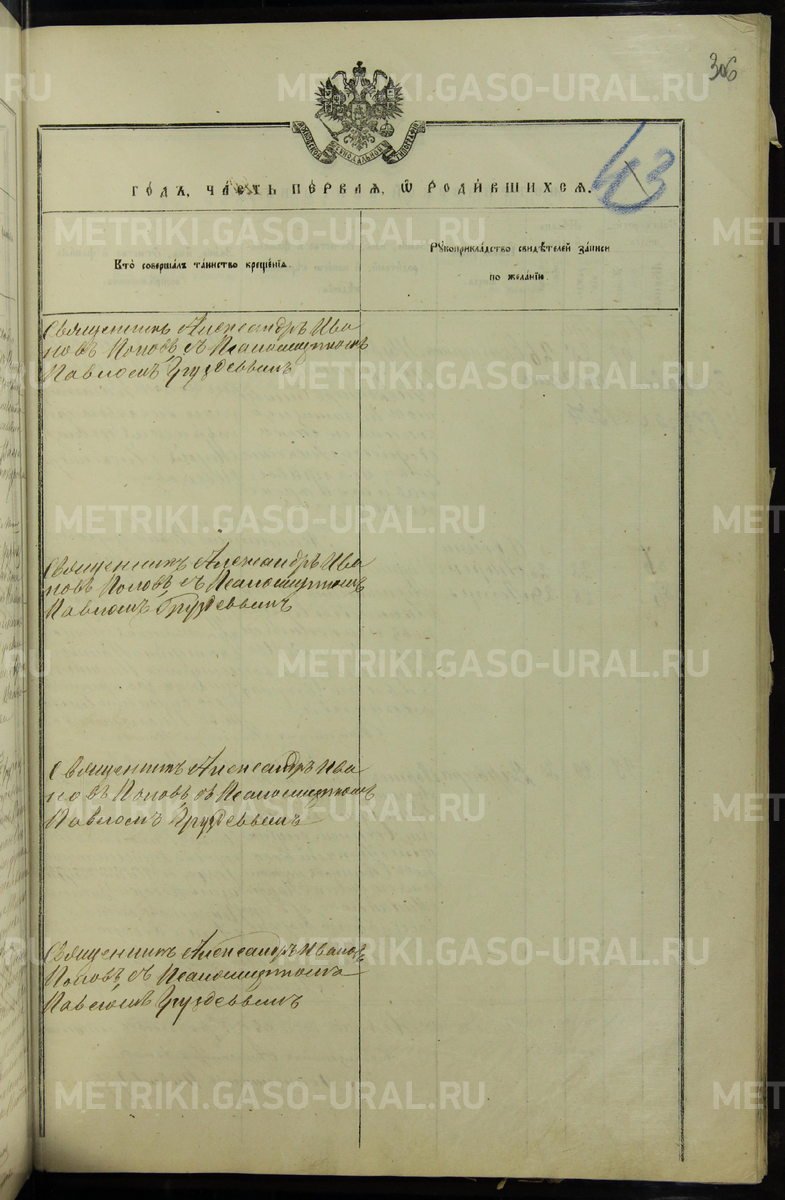 306
МОСКОВСКОЙ СѴНОДАЛЬНОЙ ТИПОГРАФІИ
43
ГО́ДЪ, ЧА́СТЬ ПЕ́РВАЯ, Ѡ РОДИ́ВШИХСЯ.
Кто̀ совершалъ та́инство креще́нїя.
Рꙋкоприкла́дство свидѣ́телей за́писи
по жела́нїю.
Священникъ Александръ Ива
новъ Поповъ съ Псаломщикомъ
Павломъ Груздевымъ
Священникъ Александръ Ива
новъ Поповъ съ Псаломщикомъ
Павломъ Груздевымъ
Священникъ Александръ Ива
новъ Поповъ съ Псаломщикомъ
Павломъ Груздевымъ
Священникъ Александръ Ивановъ
Поповъ съ Псаломщикомъ
Павломъ Груздевымъ
METRIKI.GASO-URAL.RU